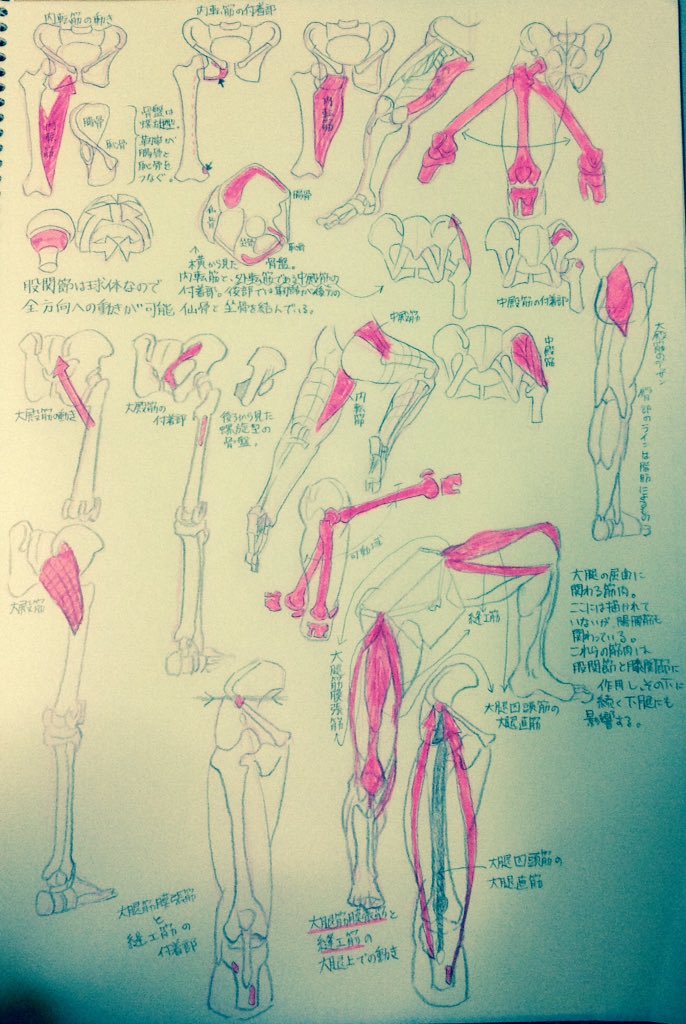 内転筋の動き
内転筋の付着部
内転筋
内転筋
腸骨
恥骨
骨盤は
螺旋型。
靭帯が
腸骨と
恥骨を
つなぐ。
腸骨
坐骨
恥骨
↑
横から見た骨盤。
内転筋と、外転筋である中殿筋の
付着部。後部では靭帯が後方の
仙骨と坐骨を結んでいる。
股関節は球体なので
全方向への動きが可能
中殿筋の付着部
中殿筋
中殿筋
内転筋
大殿筋のデッサン
臀部のラインは脂肪によるもの
大殿筋の動き
大殿筋の
付着部
後ろから見た
螺旋型の
骨盤。
大殿筋
可動域
縫工筋
大腿筋膜張筋
大腿四頭筋の
大腿直筋
大腿の屈曲に
関わる筋肉。
ここには描かれて
いないが、腸腰筋も
関わっている。
これらの筋肉は
股関節と膝関節に
作用し、その下に
続く下腿にも
影響する。
大腿四頭筋の
大腿直筋
大腿筋膜張筋
と
縫工筋の
付着部
大腿筋膜張筋と
縫工筋の
大腿上での動き